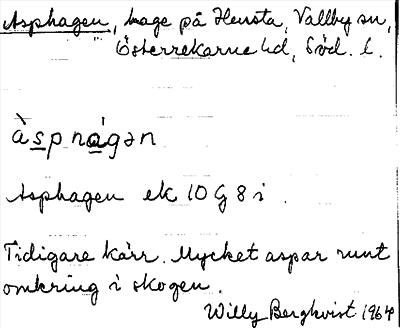 Asphagen, hage på Hensta, Vallby sn,
Österrekarne hd, Söd. l.
às̲pna̲̒gən
Asphagen ek 10 G 8 i.
Tidigare kärr. Mycket aspar runt
omkring i skogen.
Willy Bergkvist 1964